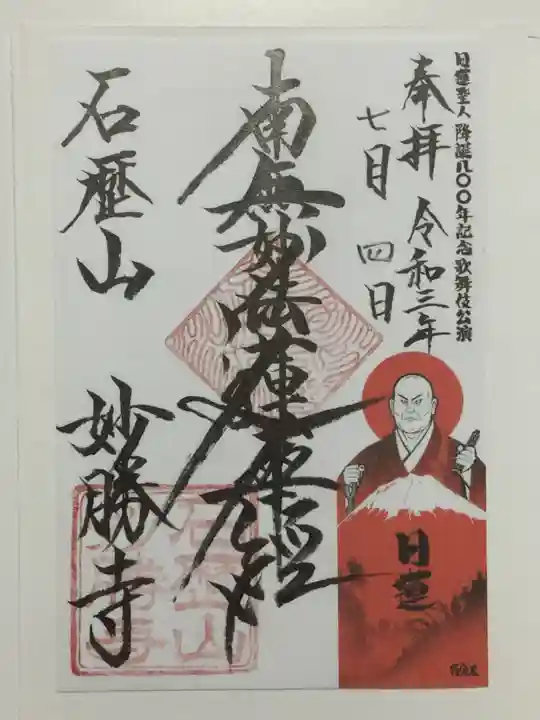 日蓮聖人 降誕八〇〇年記念歌舞伎公演
奉拝 令和三年
七月 四日
南無妙法蓮華経
石歴山 妙勝寺
日蓮
石歴山